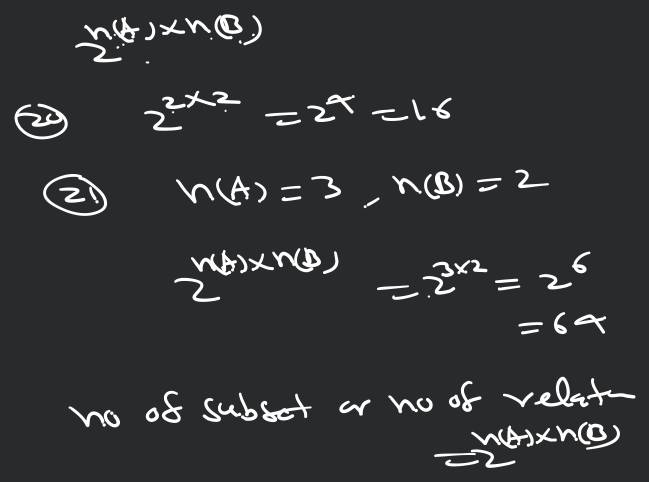 2^{n(A)×n(B)}
(20) 2^{2×2} = 2^4 = 16
(21) n(A) = 3, n(B) = 2
2^{n(A)×n(B)} = 2^{3×2} = 2^6
= 64
no of subset or no of
= 2^{n(A)×n(B)}